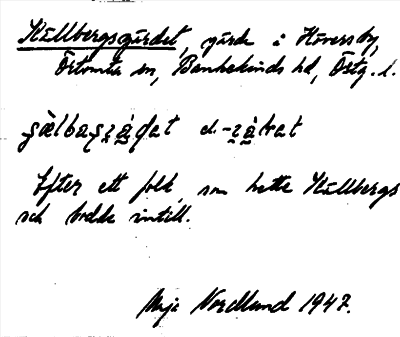 Källbergsgärdet, gärde i Höversby,
Örtomta sn, Bankekinds hd, Östg. l.
Efter ett folk, som hette Källbergs
och bodde intill.
Maja Nordlund 1947.